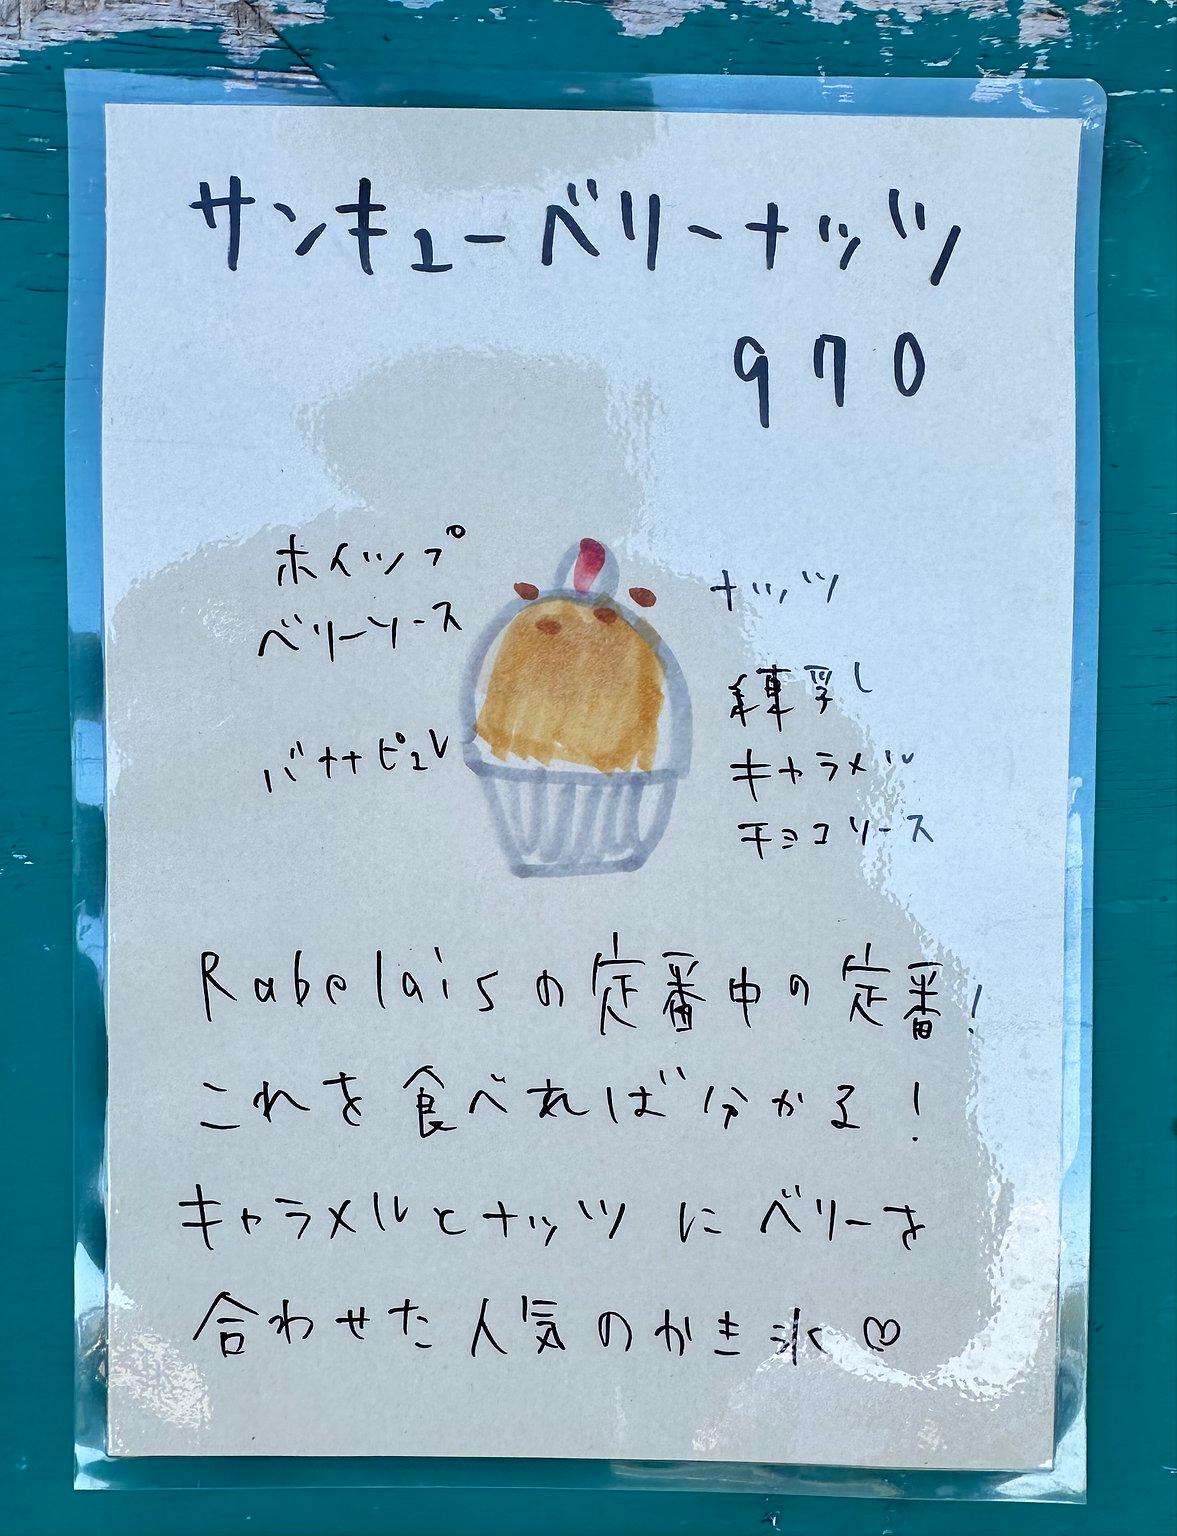 サンキューベリーナッツ
970
ホイップ
ベリーソース
バナナピュレ
ナッツ
練乳
キャラメル
チョコソース
Rabelaisの定番中の定番!
これを食べれば分かる!
キャラメルとナッツにベリーを
合わせた人気のかき氷♡